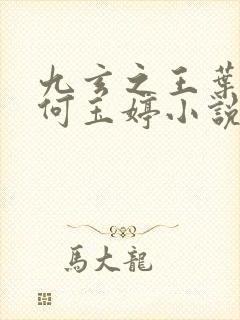 九玄之王葉
何玉婷小說
馬大龍